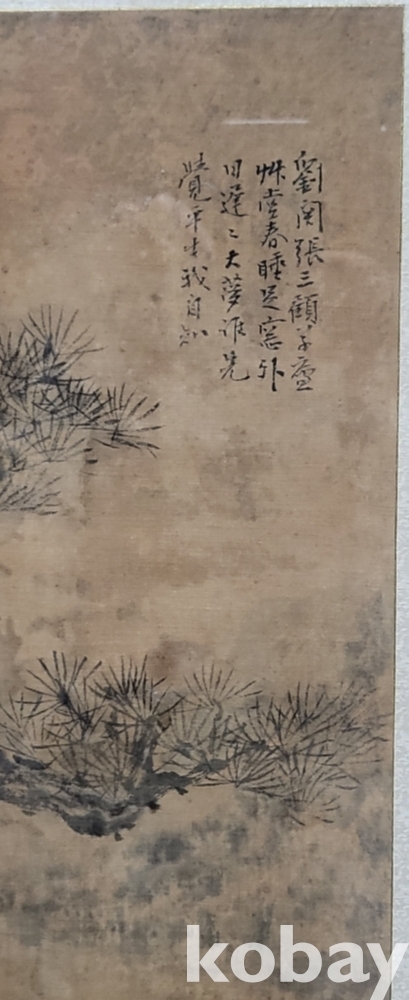 劉関張三顧草廬
艸堂春睡足窓外
日遅〻大夢誰先
覺平生我自知
kobay